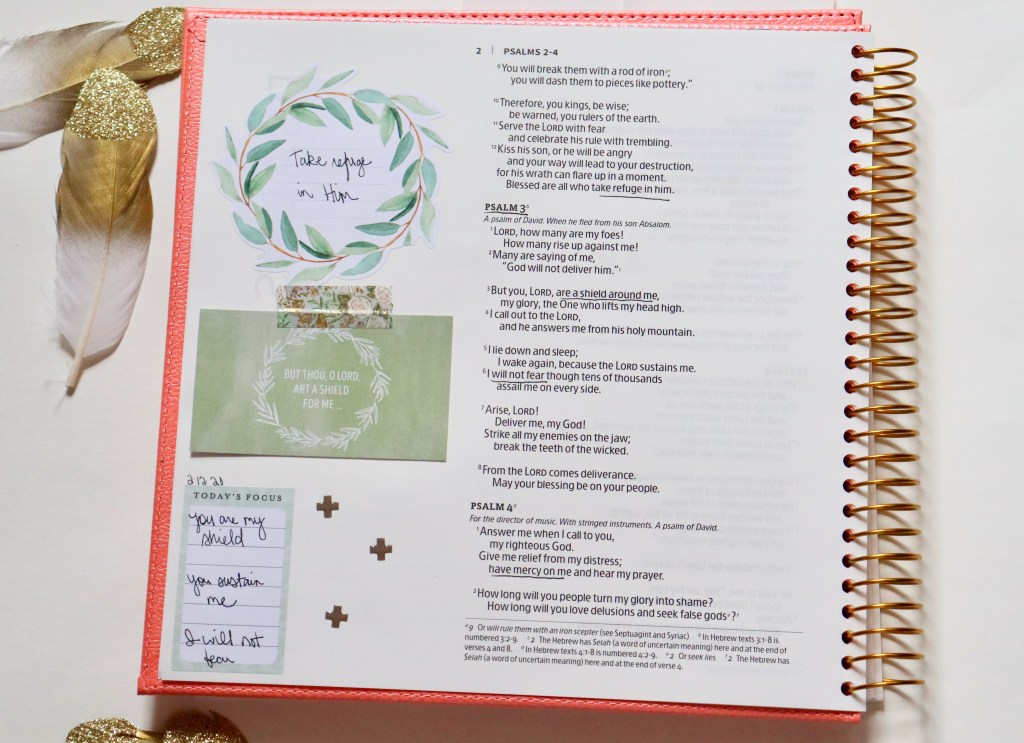 2 | PSALMS 2-4
Take refuge
in Him
BUT THOU, O LORD,
ART A SHIELD
FOR ME ...
2 12 20
TODAY'S FOCUS
you are my
shield
you sustain
me
I will not
fear
9 You will break them with a rod of iron a;
you will dash them to pieces like pottery."
10 Therefore, you kings, be wise;
be warned, you rulers of the earth.
11 Serve the LORD with fear
and celebrate his rule with trembling.
12 Kiss his son, or he will be angry
and your way will lead to your destruction,
for his wrath can flare up in a moment.
Blessed are all who take refuge in him.
PSALM 3 b
A psalm of David. When he fled from his son Absalom.
1 LORD, how many are my foes!
How many rise up against me!
2 Many are saying of me,
"God will not deliver him." c
3 But you, LORD, are a shield around me,
my glory, the One who lifts my head high.
4 I call out to the LORD,
and he answers me from his holy mountain.
5 I lie down and sleep;
I wake again, because the LORD sustains me.
6 I will not fear though tens of thousands
assail me on every side.
7 Arise, LORD!
Deliver me, my God!
Strike all my enemies on the jaw;
break the teeth of the wicked.
8 From the LORD comes deliverance.
May your blessing be on your people.
PSALM 4 d
For the director of music. With stringed instruments. A psalm of David.
1 Answer me when I call to you,
my righteous God.
Give me relief from my distress;
have mercy on me and hear my prayer.
2 How long will you people turn my glory into shame?
How long will you love delusions and seek false gods e? f
a 9 Or will rule them with an iron scepter (see Septuagint and Syriac) b In Hebrew texts 3:1-8 is
numbered 3:2-9. c 2 The Hebrew has Selah (a word of uncertain meaning) here and at the end of
verses 4 and 8. d In Hebrew texts 4:1-8 is numbered 4:2-9. e 2 Or seek lies f 2 The Hebrew has
Selah (a word of uncertain meaning) here and at the end of verse 4.